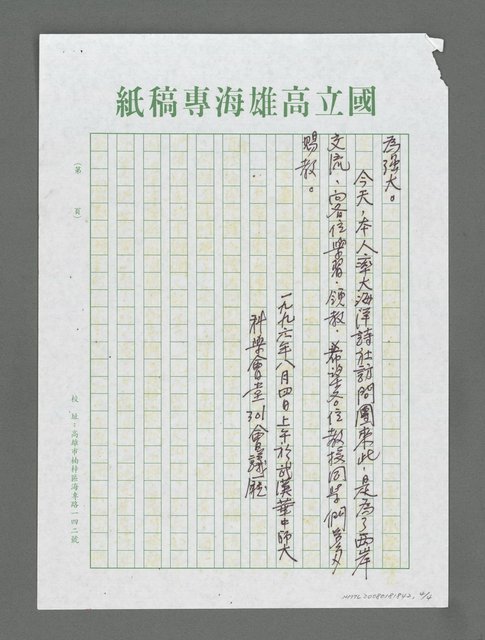 國立高雄海專稿紙
為強大。
今天，本人率大海洋詩社訪問團來此，是為了兩岸
交流，向各位學習、領教，希望各位教授同學們多多
賜教。
一九九六年八月四日上午於武漢華中師大
科學會堂301會議廳
（第　頁）
校址：高雄市楠梓區海專路一四二號
NMTL20080181842, 4/4